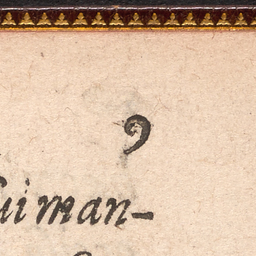 9
ſui man-